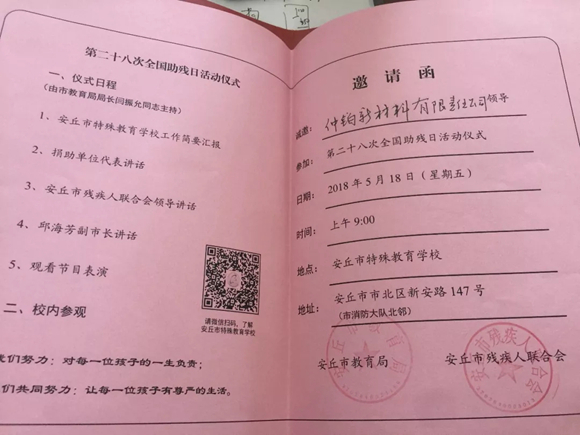 第二十八次全国助残日活动仪式
一、仪式日程
（由市教育局局长闫振允同志主持）
1、安丘市特殊教育学校工作简要汇报
2、捐助单位代表讲话
3、安丘市残疾人联合会领导讲话
4、邱海芳副市长讲话
5、观看节目表演
请微信扫码，了解
安丘市特殊教育学校
二、校内参观
我们努力：对每一位孩子的一生负责；
我们共同努力：让每一位孩子有尊严的生活。
邀请函
诚邀：新材料有限责任公司领导
参加：第二十八次全国助残日活动仪式
日期：2018年5月18日（星期五）
时间：上午9:00
地点：安丘市特殊教育学校
地址：安丘市市北区新安路147号
（市消防大队北邻）
安丘市教育局 安丘市残疾人联合会
安丘市教育局
安丘市残疾人联合会